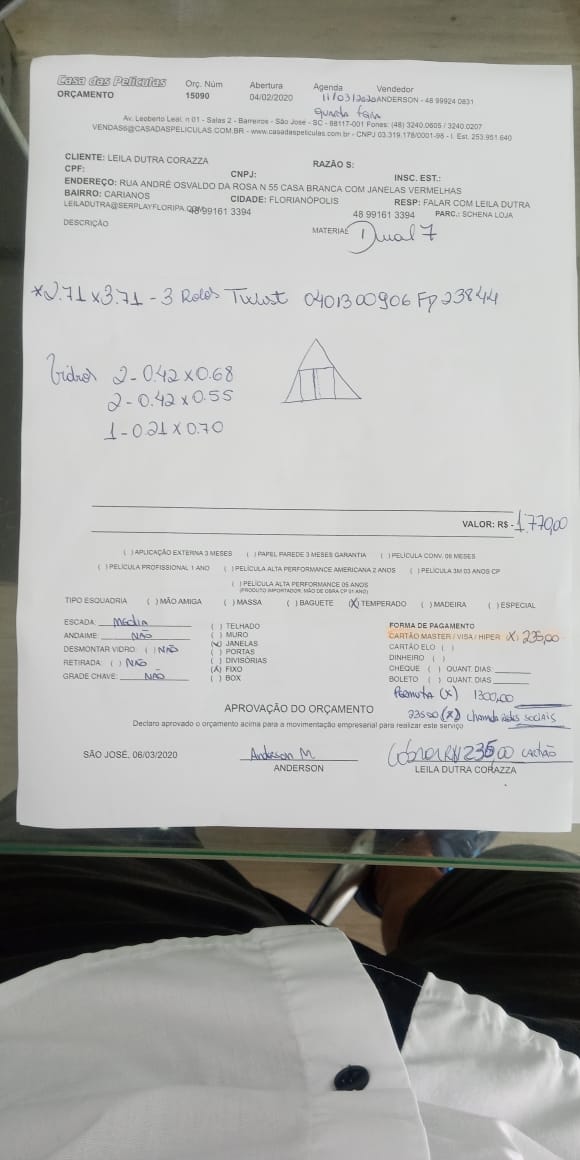 Casa das Películas Orç. Núm Abertura Agenda Vendedor
ORÇAMENTO 15090 04/02/2020 11/03/2020 ANDERSON - 48 99924 0831
quarta feira
Av. Leoberto Leal, n 01 - Salas 2 - Barreiros - São José - SC - 88117-001 Fones: (48) 3240.0605 / 3240.0207
VENDAS6@CASADASPELICULAS.COM.BR - www.casadaspeliculas.com.br - CNPJ 03.319.178/0001-98 - I. Est. 253.951.640
CLIENTE: LEILA DUTRA CORAZZA RAZÃO S:
CPF: CNPJ: INSC. EST.:
ENDEREÇO: RUA ANDRÉ OSVALDO DA ROSA N 55 CASA BRANCA COM JANELAS VERMELHAS
BAIRRO: CARIANOS CIDADE: FLORIANÓPOLIS RESP: FALAR COM LEILA DUTRA
LEILADUTRA@SERPLAYFLORIPA.COM 48 99161 3394 48 99161 3394 PARC.: SCHENA LOJA
DESCRIÇÃO MATERIAL Dual 7
*2.71 x 3.71 - 3 Rolos Twist 0401300906 Fp 23844
Vidros 2 - 0.42 x 0.68
2 - 0.42 x 0.55
1 - 0.21 x 0.70
VALOR: R$ - 1.770,00
( ) APLICAÇÃO EXTERNA 3 MESES ( ) PAPEL PAREDE 3 MESES GARANTIA ( ) PELÍCULA CONV. 06 MESES
( ) PELÍCULA PROFISSIONAL 1 ANO ( ) PELÍCULA ALTA PERFORMANCE AMERICANA 2 ANOS ( ) PELÍCULA 3M 03 ANOS CP
( ) PELÍCULA ALTA PERFORMANCE 05 ANOS
(PRODUTO IMPORTADOR, MÃO DE OBRA CP 01 ANO)
TIPO ESQUADRIA ( ) MÃO AMIGA ( ) MASSA ( ) BAGUETE (X) TEMPERADO ( ) MADEIRA ( ) ESPECIAL
ESCADA: Média ( ) TELHADO FORMA DE PAGAMENTO
ANDAIME: NÃO ( ) MURO CARTÃO MASTER / VISA / HIPER (X) 235,00
DESMONTAR VIDRO: ( ) NÃO (X) JANELAS CARTÃO ELO ( )
RETIRADA: ( ) NÃO ( ) PORTAS DINHEIRO ( )
GRADE CHAVE: NÃO ( ) DIVISÓRIAS CHEQUE ( ) QUANT. DIAS:
(X) FIXO BOLETO ( ) QUANT. DIAS
( ) BOX Permuta (X) 1300,00
APROVAÇÃO DO ORÇAMENTO 235,00 (X) chamda redes sociais
Declaro aprovado o orçamento acima para a movimentação empresarial para realizar este serviço
SÃO JOSÉ, 06/03/2020 Anderson M. Cobrar R$ 235,00 cartão
ANDERSON LEILA DUTRA CORAZZA